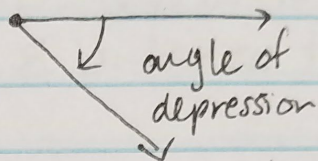 angle of
depression